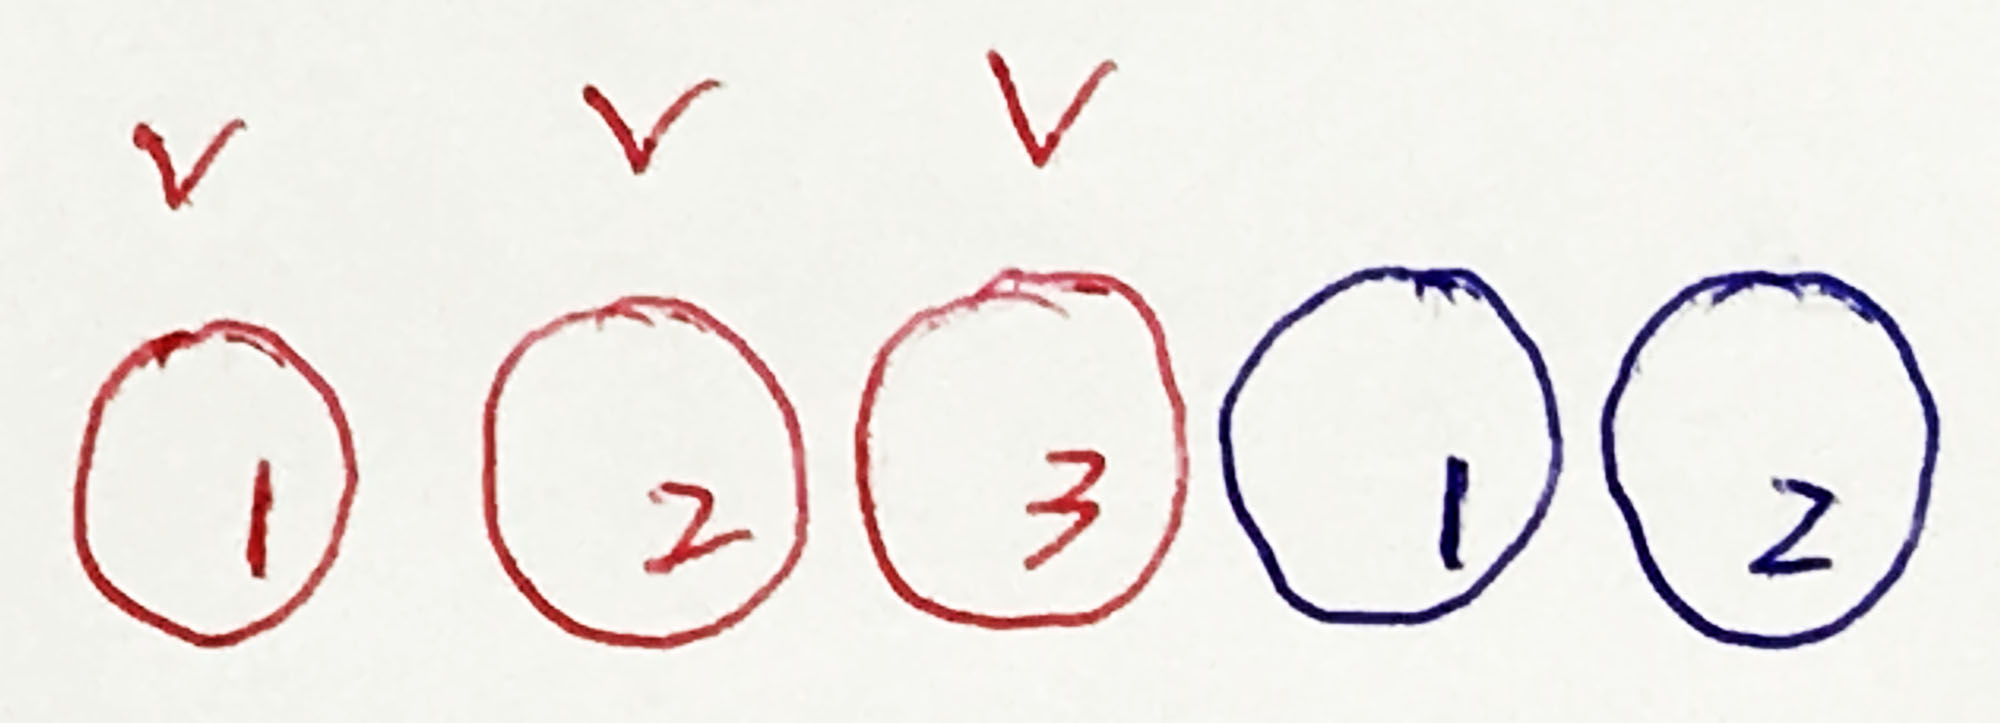 ✓ ✓ ✓
1 2 3 1 2